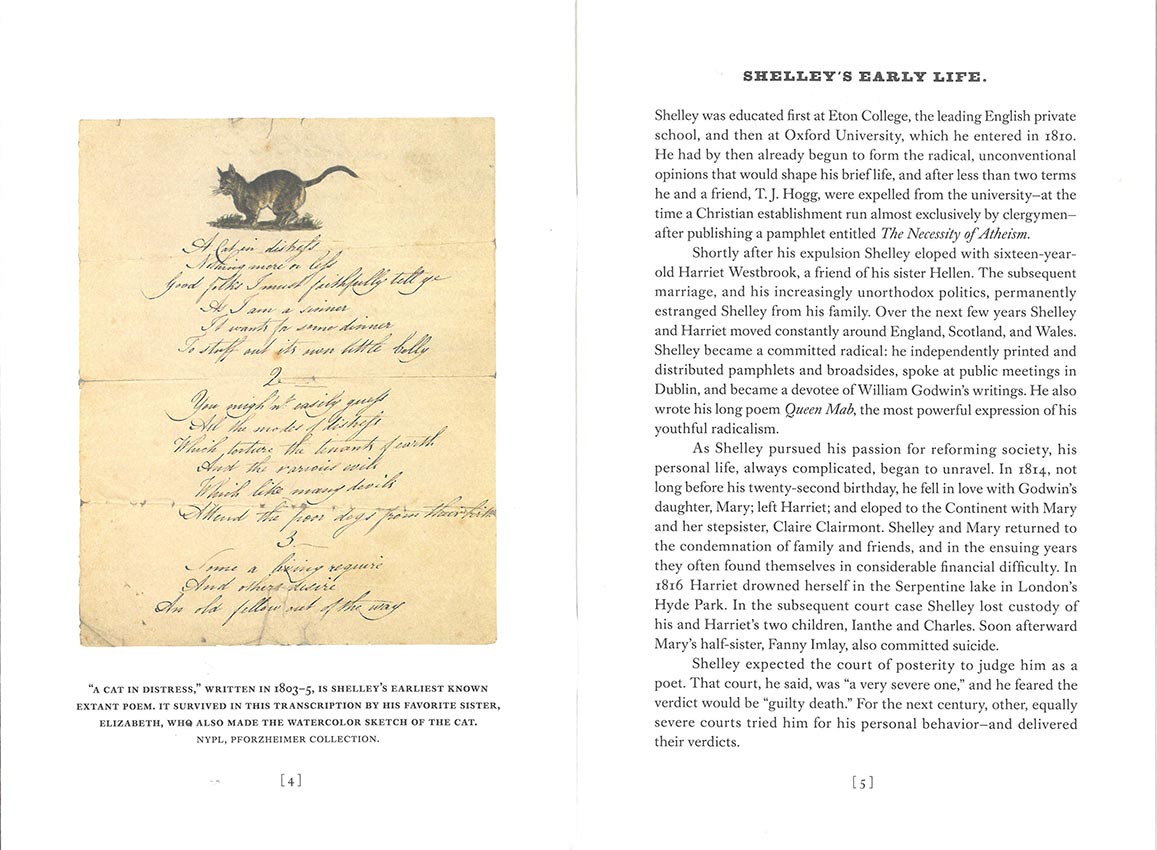 A Cat in distress
Nothing more or less
Good folks I must faithfully tell ye
As I am a sinner
It wants for some dinner
To stuff out its own little belly
2
You mightn't easily guess
All the modes of distress
Which torture the tenants of earth
And the various evils
Which like many devils
Attend the poor dogs from their birth
3
Some a living require
And others desire
An old fellow out of the way
“A CAT IN DISTRESS,” WRITTEN IN 1803–5, IS SHELLEY’S EARLIEST KNOWN
EXTANT POEM. IT SURVIVED IN THIS TRANSCRIPTION BY HIS FAVORITE SISTER,
ELIZABETH, WHO ALSO MADE THE WATERCOLOR SKETCH OF THE CAT.
NYPL, PFORZHEIMER COLLECTION.
[4]
SHELLEY’S EARLY LIFE.
Shelley was educated first at Eton College, the leading English private
school, and then at Oxford University, which he entered in 1810.
He had by then already begun to form the radical, unconventional
opinions that would shape his brief life, and after less than two terms
he and a friend, T. J. Hogg, were expelled from the university—at the
time a Christian establishment run almost exclusively by clergymen—
after publishing a pamphlet entitled The Necessity of Atheism.
Shortly after his expulsion Shelley eloped with sixteen-year-
old Harriet Westbrook, a friend of his sister Hellen. The subsequent
marriage, and his increasingly unorthodox politics, permanently
estranged Shelley from his family. Over the next few years Shelley
and Harriet moved constantly around England, Scotland, and Wales.
Shelley became a committed radical: he independently printed and
distributed pamphlets and broadsides, spoke at public meetings in
Dublin, and became a devotee of William Godwin’s writings. He also
wrote his long poem Queen Mab, the most powerful expression of his
youthful radicalism.
As Shelley pursued his passion for reforming society, his
personal life, always complicated, began to unravel. In 1814, not
long before his twenty-second birthday, he fell in love with Godwin’s
daughter, Mary; left Harriet; and eloped to the Continent with Mary
and her stepsister, Claire Clairmont. Shelley and Mary returned to
the condemnation of family and friends, and in the ensuing years
they often found themselves in considerable financial difficulty. In
1816 Harriet drowned herself in the Serpentine lake in London’s
Hyde Park. In the subsequent court case Shelley lost custody of
his and Harriet’s two children, Ianthe and Charles. Soon afterward
Mary’s half-sister, Fanny Imlay, also committed suicide.
Shelley expected the court of posterity to judge him as a
poet. That court, he said, was “a very severe one,” and he feared the
verdict would be “guilty death.” For the next century, other, equally
severe courts tried him for his personal behavior—and delivered
their verdicts.
[5]